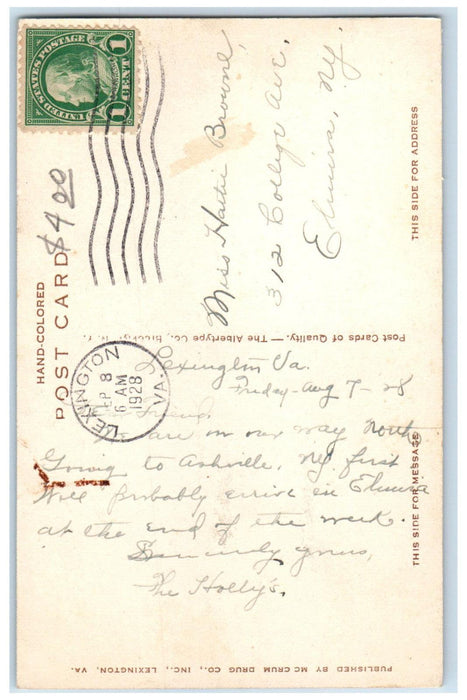 UNITED STATES POSTAGE
1 CENT 1
$4.00
HAND-COLORED
POST CARD
LEXINGTON
SEP 8
6 AM
1928
VA.
Miss Hattie Browne,
312 College Ave,
Elmira, Ny.
THIS SIDE FOR ADDRESS
Post Cards of Quality. — The Albertype Co., Brooklyn, N. Y.
Lexington Va.
Friday - Aug 7 - 28
Friend,
We are on our way North
Going to Ashville, Ny first
Will Probably arrive in Elmira
at the end of the week.
Sincerely yours,
The Holly's.
THIS SIDE FOR MESSAGE
PUBLISHED BY MC CRUM DRUG CO., INC., LEXINGTON, VA.